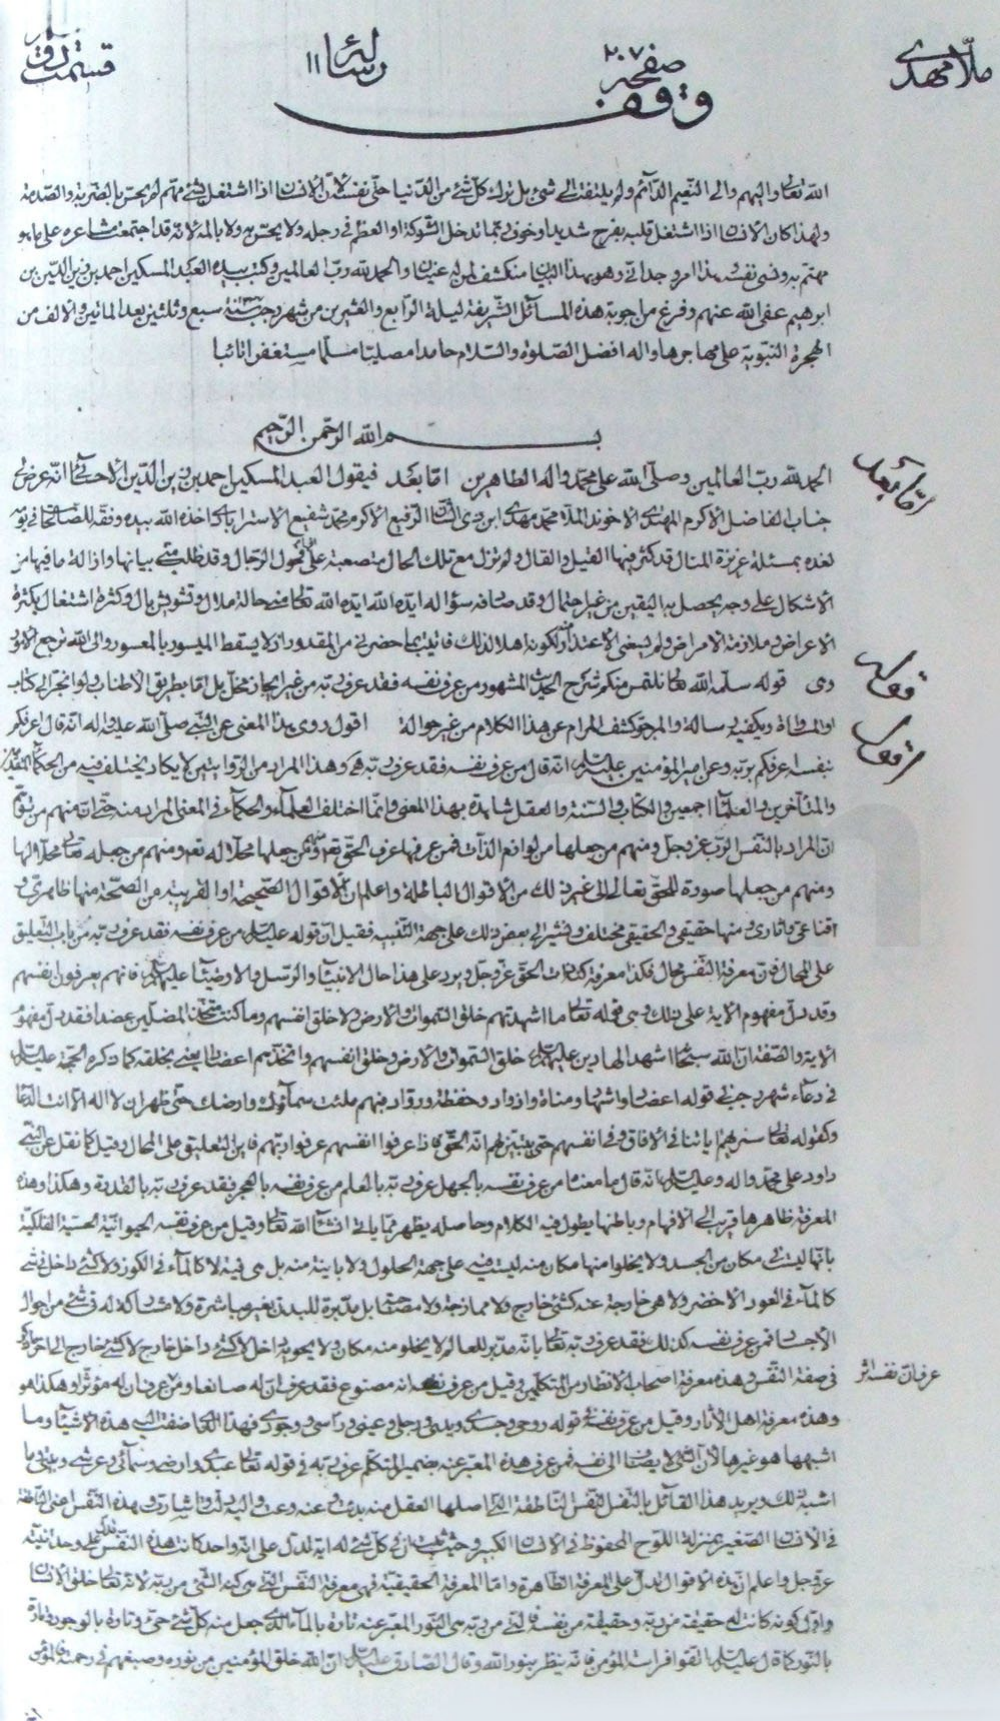 ملا مهدي
صفحه ٢٠٧
رسالة ١١
قسمت
وقف
الله تعالى واليهم والى النعيم الدائم ولم يلتفت الى شئ بل ترك كل شئ من الدنيا حتى نفسه لان الانسان اذا اشتغل بشئ مهم لم يحس بالضربة والصدمة
ولهذا كان الانسان اذا اشتغل قلبه بفرح شديد او خوف ربما تدخل الشوكة او العظم في رجله ولا يحس به ولا بالمه لانه قد اجتمعت مشاعره على ما هو
مهتم به ونسى نفسه وهذا امر وجداني وهو بهذا البيان منكشف لمن له عينان والحمد لله رب العالمين وكتب بيده العبد المسكين احمد بن زين الدين بن
ابرهيم عفى الله عنهم وفرغ من اجوبة هذه المسائل الشريفة ليلة الرابع والعشرين من شهر رجب سنة سبع وثلثين بعد المأتين والالف من
الهجرة النبوية على مهاجرها واله افضل الصلوة والسلام حامدا مصليا مسلما مستغفرا تائبا
بسم الله الرحمن الرحيم
الحمد لله رب العالمين وصلى الله على محمد واله الطاهرين اما بعد فيقول العبد المسكين احمد بن زين الدين الاحسائي انه عرض لي
اما بعد
جناب الفاضل الاكرم المهتدي الاخوند الملا محمد مهدي ابن ذي الشان الرفيع الاكرم محمد شفيع الاسترابادي اخذ الله بيده ووفقه للصالحات في يومه
لغده بمسئلة عزيزة المنال قد كثر فيها القيل والقال ولم تزل مع تلك الحال متصعبة على فحول الرجال وقد طلب مني بيانها وازالة ما فيها من
الاشكال على وجه يحصل به اليقين من غير احتمال وقد صادف سؤاله ايده الله ايده الله تعالى مني حالة ملال وتشويش بال وكثرة اشتغال بكثرة
الاعراض وملازمة الامراض ولم يسعني الاعتذار لكونه اهلا لذلك فاتيت بما حضرني من المقدور اذ لا يسقط الميسور بالمعسور والى الله ترجع الامور
قوله سلمه الله تعالى نلتمس منكم شرح الحديث المشهور من عرف نفسه فقد عرف ربه من غير ايجاز مخل بل اما بطريق الاطناب ولو انجر الى كتاب
قوله
او المساواة ويكفيه رسالة والمرجو كشف المرام عن هذا الكلام من غير حوالة اقول روى بهذا المعنى عن النبي صلى الله عليه واله انه قال اعرفكم
اقول
بنفسه اعرفكم بربه وعن امير المؤمنين عليه السلام انه قال من عرف نفسه فقد عرف ربه وهذا المراد من الروايتين لا يكاد يختلف فيه من الحكماء المتقدمين
والمتأخرين والعلماء اجمعين والكتاب والسنة والعقل شاهدة بهذا المعنى وانما اختلف العلماء والحكماء في المعنى المراد منه حتى ان منهم من توهم
ان المراد بالنفس الرب عز وجل ومنهم من جعلها من لوازم الذات فمن عرفها عرف الحق تعالى ومنهم من جعلها محلا له تعالى ومنهم من جعله تعالى محلا لها
ومنهم من جعلها صورة للحق تعالى الى غير ذلك من الاقوال الباطلة واعلم ان الاقوال الصحيحة او القريبة من الصحة منها ظاهري و
اقناعي واثاري ومنها حقيقي والحقيقي مختلف ونشير الى بعض ذلك على جهة التنبيه فقيل ان قوله عليه السلام من عرف نفسه فقد عرف ربه من باب التعليق
على المحال فان معرفة النفس محال فكذا معرفة كنه ذات الحق عز وجل ويرد على هذا حال الانبياء والرسل والاوصياء عليهم السلام فانهم يعرفون انفسهم
وقد دل مفهوم الاية على ذلك وهي قوله تعالى ما اشهدتهم خلق السموات والارض ولا خلق انفسهم وما كنت متخذ المضلين عضدا فقد دل مفهوم
الاية والصفة ان الله سبحانه اشهد الهادين عليهم السلام خلق السموات والارض وخلق انفسهم واتخذهم اعضادا يعني لخلقه كما ذكره الحجة عليه السلام
في دعاء شهر رجب في قوله اعضاد واشهاد ومناة واذواد وحفظة ورواد فبهم ملأت سماءك وارضك حتى ظهر ان لا اله الا انت الدعاء
وكقوله تعالى سنريهم اياتنا في الافاق وفي انفسهم حتى يتبين لهم انه الحق فاذا عرفوا انفسهم عرفوا ربهم فاين التعليق على المحال وقيل كما نقل عن النبي
داود على محمد واله وعليه السلام انه قال ما معناه من عرف نفسه بالجهل عرف ربه بالعلم من عرف نفسه بالعجز فقد عرف ربه بالقدرة وهكذا وهذه
المعرفة ظاهرها قريب الى الافهام وباطنها يطول فيه الكلام وحاصله يظهر مما يأتي انشاء الله تعالى وقيل من عرف نفسه الحيوانية الحسية الفلكية
بانها ليست في مكان من الجسد ولا يخلوا منها مكان منه ليست فيه على جهة الحلول ولا باينة منه بل هي فيه لا كالماء في الكوز ولا كشئ داخل في شئ
كالماء في العود الاخضر ولا هي خارجة عنه كشئ خارج ولا ممازجة ولا بل مدبرة للبدن بغير مباشرة ولا مشاركة له في شئ من احوال
الاجسام فمن عرف نفسه كذلك فقد عرف ربه تعالى بانه مدبر للعالم لا يخلو منه مكان ولا يحويه داخل لا كشئ داخل خارج لا كشئ خارج الى اخر ما ذكر
في صفة النفس وهذه معرفة اصحاب الانظار من المتكلمين وقيل من عرف نفسه انه مصنوع فقد عرف ان له صانعا ومن عرف انه اثر عرف ان له مؤثرا وهكذا هو
عرف ان نفسه اثر
وهذه معرفة اهل الاثار وقيل من عرف نفسه في قوله روحي وجسدي ويدي ورجلي وعيني وراسي ووجودي فهذا الذي اضفت اليه هذه الاشياء وما
اشبهها هو غيرها لان الشئ لا يضاف الى نفسه فمن عرف هذه المعبر عنه بضمير المتكلم عرف ربه في قوله تعالى عبدي وارضي وسمائي وعرشي وبيتي وما
اشبه ذلك ويريد هذا القائل بالنفس النفس الناطقة التي اصلها العقل منه بدئت وعنه وعت واليه دلت واشارت وهذه النفس اعني الناطقة
في الانسان الصغير بمنزلة اللوح المحفوظ في الانسان الكبير وحيث ثبت ان في كل شئ له اية تدل على انه واحد كانت هذه النفس تدل على وحدانيته
عز وجل واعلم ان هذه الاقوال تدل على المعرفة الظاهرة واما المعرفة الحقيقية فهي معرفة النفس التي هي كنه الشئ من ربه لانه تعالى خلق الانسان
واول كونه كانت له حقيقة من ربه وحقيقة من نفسه فالتي من ربه هي النور المعبر عنه تارة بالماء الذي جعل منه كل شئ حي وتارة بالوجود وتارة
بالنور كما قال عليه السلام اتقوا فراسة المؤمن فانه ينظر بنور الله وقال الصادق عليه السلام ان الله خلق المؤمنين من نوره وصبغهم في رحمته فالمؤمن